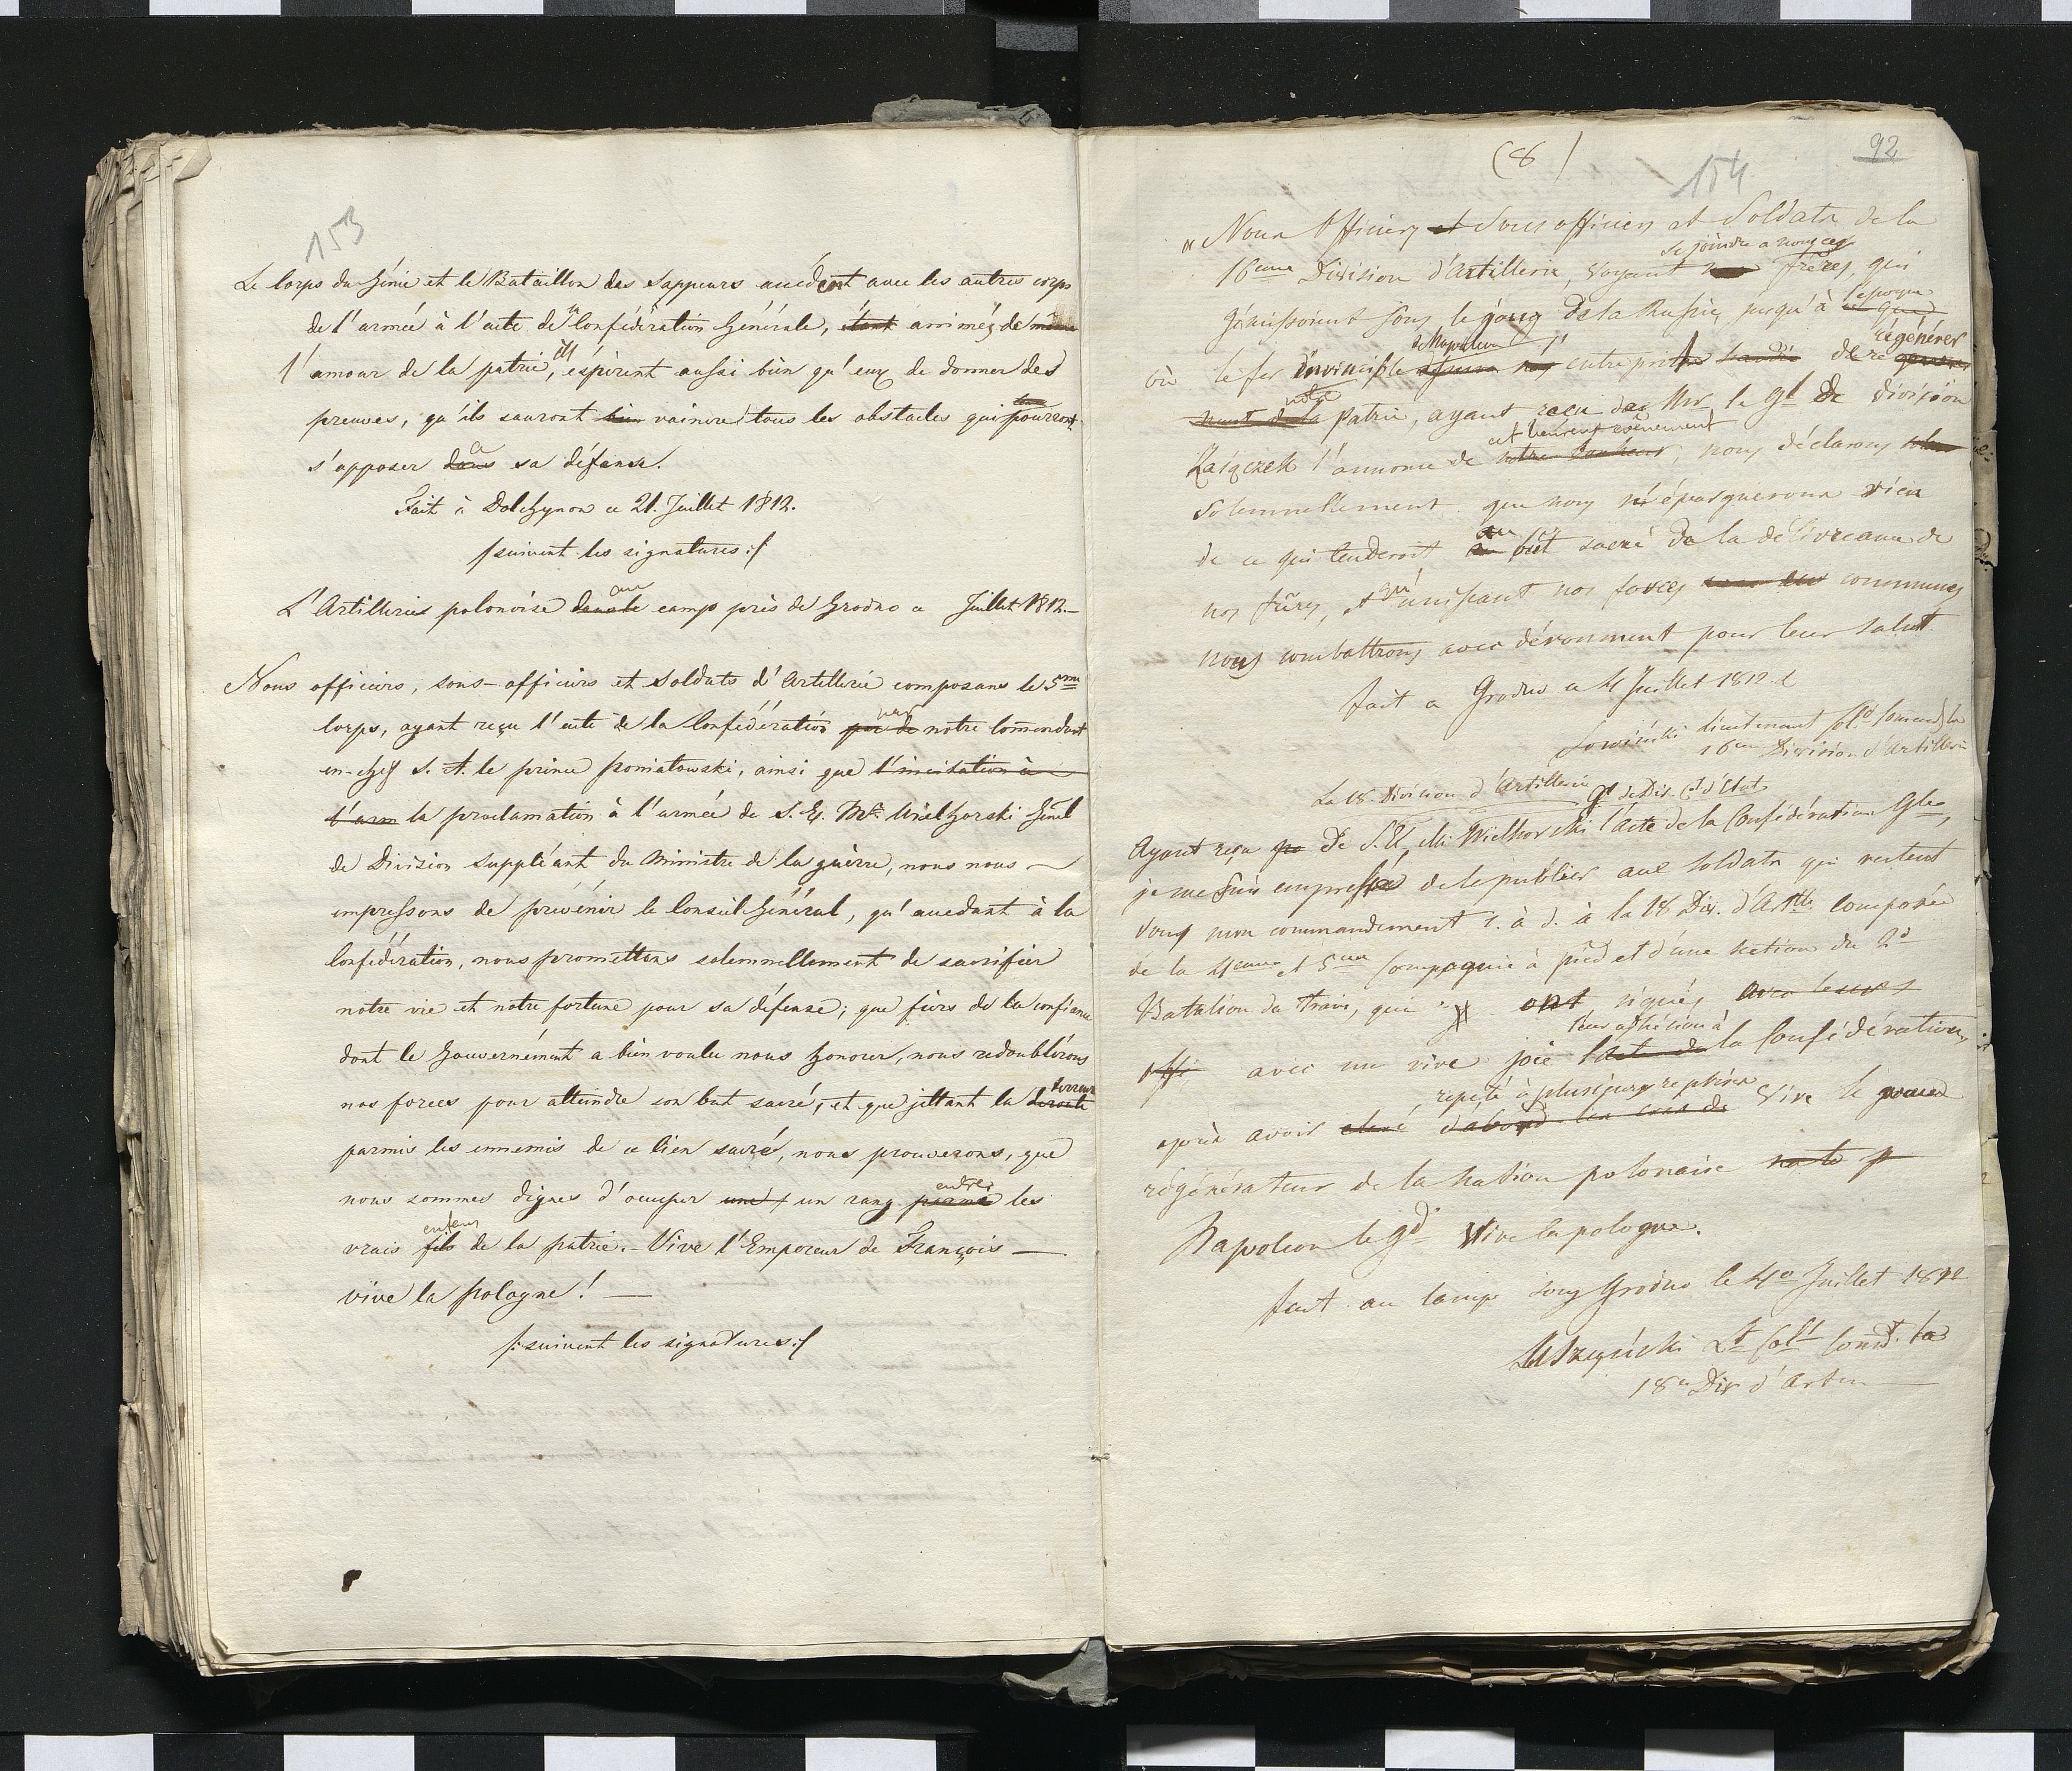 153
Le Corps du Génie et le Bataillon des Sappeurs accèdent avec les autres corps
de l'armée à l'acte de la Confédération Générale, étant animés de même
l'amour de la patrie, ils éspèrent aussi bien qu'eux de donner des
preuves, qu'ils sauront bien vaincre tous les obstacles qui pourront
s'opposer dans a sa défense.
Fait à Dolhynow ce 21. Juillet 1812.
/:suivent les signatures:/
L'Artilleries polonoise dans le au camp près de Grodno ce Juillet 1812.–
Nous officiers, sous-officiers et soldats d'Artillerie composans le 5me
Corps, ayant reçu l'acte de la Confédération par de par notre Commandant
en-chef S. A. le prince Poniatowski, ainsi que l'invitation à
l'arm la proclamation à l'armée de S. E. Mr. Wielhorski Génl
de Division suppléant du Ministre de la guèrre, nous nous —
empressons de prévénir le Conseil Général, qu'accedant à la
Confédération, nous promettons solemnellement de sacrifier
notre vie et notre fortune pour sa défense; que fiers de la confiance
dont le Gouvernément a bien voulu nous honorer, nous redoublérons
nos forces pour atteindre son but sacré, et que jettant la deroute terreur
parmis les ennemis de ce lien sacré, nous prouverons, que
nous sommes dignes d'occuper une un rang parmi entre les
vrais fils enfans de la patrie.– Vive l'Empereur de François —
vive la Pologne! —
/:suivent les signatures:/
(8)
154
92
"Nous Officiers et Sous officiers et Soldats de la
se joindre a nous ces
16eme Division d'Artillerie, voyant nos frères, qui
gémissoient sous le joug de la Russie, jusqu'à ce que l'epoque
où le fer invincible de Napoleon entreprit de régénérer
notre patrie, ayant reçu de Mr le Gl de division
cet heureux evènement
Zaigczek l'annonce de notre bonheur, nous déclarons
Solemnellement que nous n'épargnerons rien
de ce qui tenderoit au but sacré de la délivrance de
nos frères, et qu'unissant nos forces communes
nous combattrons avec dévouement pour leur salut.
fait a Grodno ce 4 Juillet 1812.
Sowiński Lieutenant Col. Comend. la
16eme Division d'artillerie
La 18 Division d'Artillerie
Gl de Div. Ct d'Etat
Ayant reçu pa de S. E. Mr Wielhorski l'acte de la Confédération Gle,
je me suis empressé de le publier aux soldats qui restent
sous mon commandement c. à d. à la 18 Div. d'Artlle composée
de la 4eme et 5eme Compagnie à pied et d'une section du 2d
Batalion du train, qui ont signés avec leurs
leur adhésion à
offi avec une vive joie l'acte de la Confédération,
repeté à plusieurs reprises
après avoir d'abord les cris de Vive le grand
régénérateur de la Nation polonaise
Napoleon le gd Vive la pologne.
fait au Camp sous Grodno le 4o Juillet 1812
Lt Coll Comdt. la
18e Div d'Art